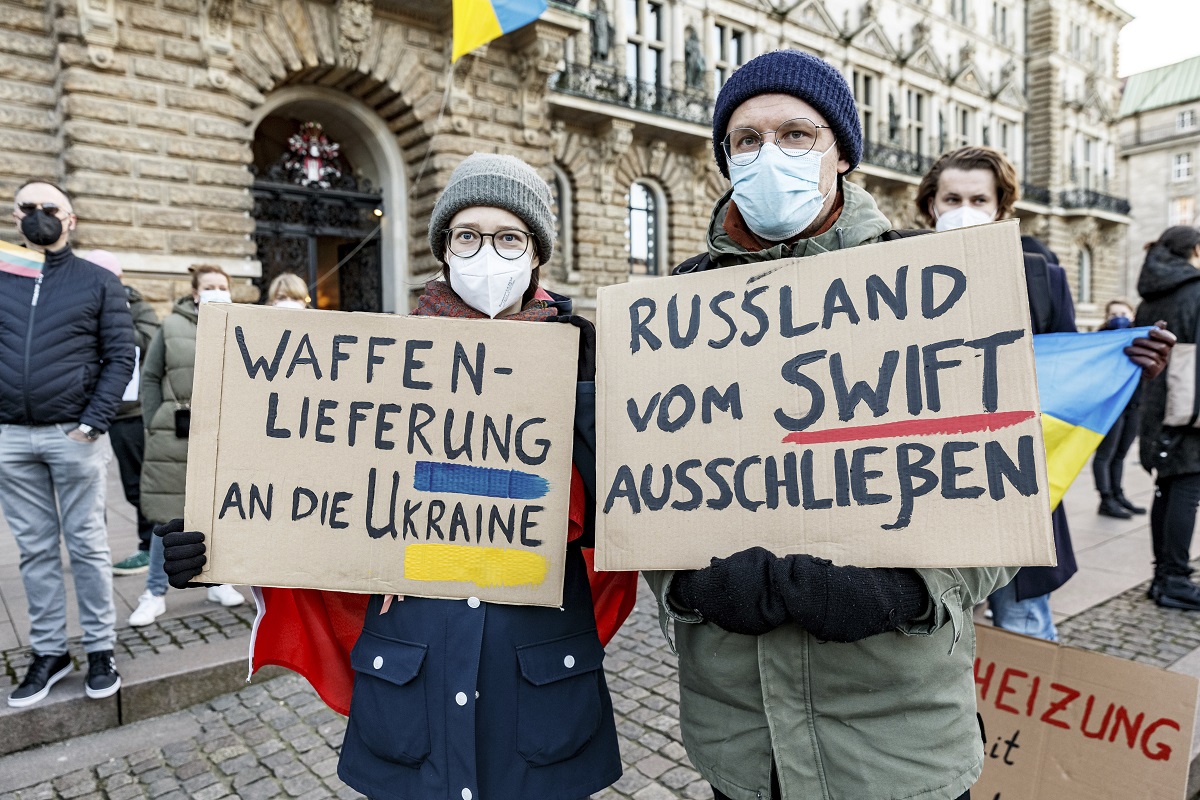 WAFFEN-
LIEFERUNG
AN DIE UKRAINE
RUSSLAND
VOM SWIFT
AUSSCHLIEßEN
HEIZUNG